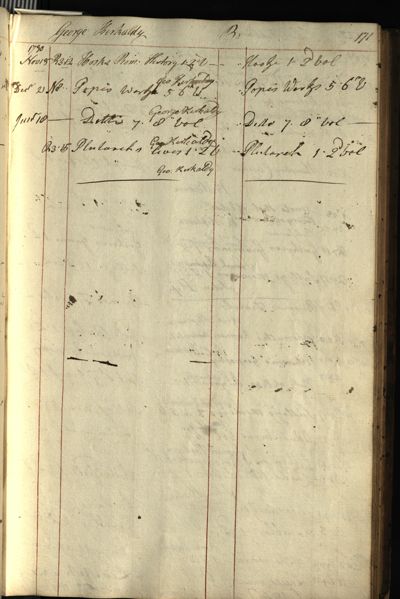 George Kirkaldy. B. 171
1780
Nov 18 Hooks Rom. History 1. 2 V Hooke 1. 2d vol
Geo Kirkaldy
Decr 21 No Popes Works 5. 6th V Popes Works 5 6th V
George Kirkaldy
18 Ditto 7. 8th vol Ditto 7. 8th vol
Geo Kirkaldy
Plutarchs Lives 1. 2 V Plutarch 1. 2d vol
Geo: Kirkaldy